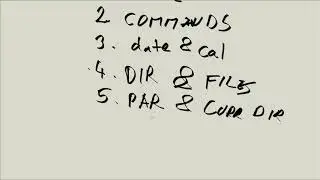 2 COMMANDS
3. date & cal
4. DIR & FILES
5. PAR & CURR DIR